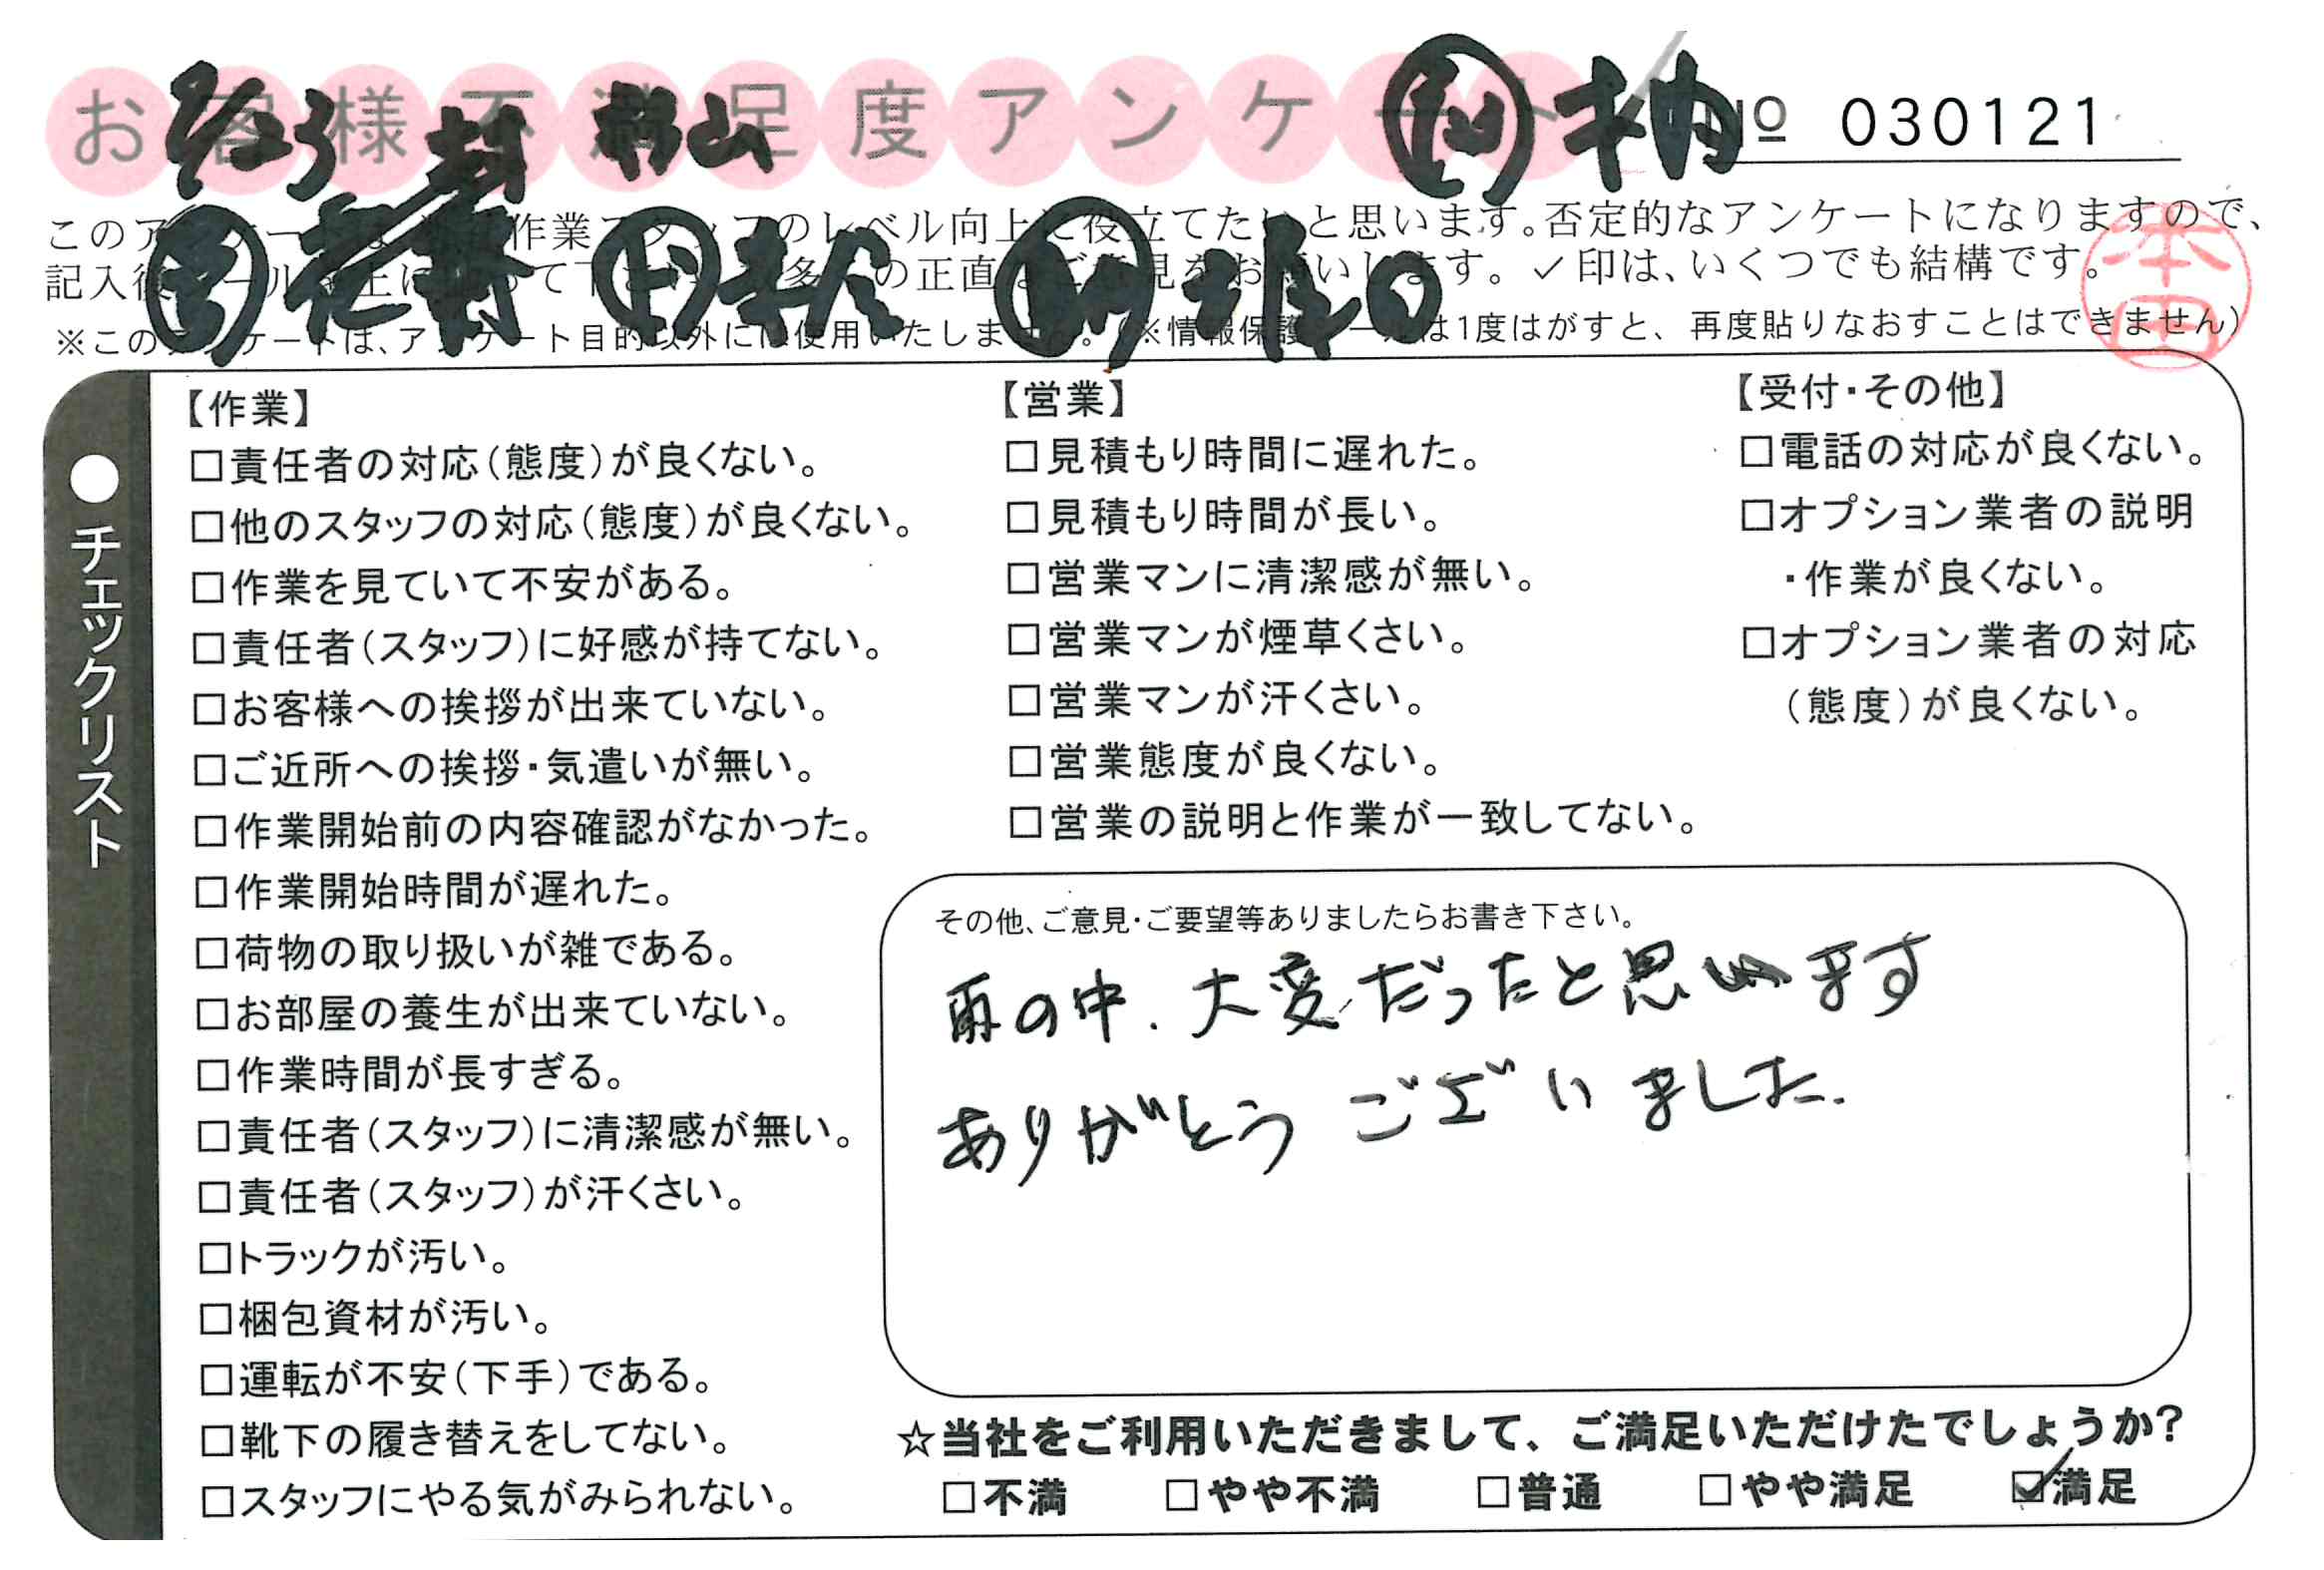 お客様不満足度アンケート № 030121
このアンケートは 作業スタッフのレベル向上に役立てたいと思います。否定的なアンケートになりますので、
記入後シール 上に って下さい 多 の正直なご意見をお願いします。✓印は、いくつでも結構です。
※このアンケートは、アンケート目的以外には使用いたしません。(※情報保護シールは1度はがすと、再度貼りなおすことはできません)
本田
●チェックリスト
【作業】
□責任者の対応(態度)が良くない。
□他のスタッフの対応(態度)が良くない。
□作業を見ていて不安がある。
□責任者(スタッフ)に好感が持てない。
□お客様への挨拶が出来ていない。
□ご近所への挨拶・気遣いが無い。
□作業開始前の内容確認がなかった。
□作業開始時間が遅れた。
□荷物の取り扱いが雑である。
□お部屋の養生が出来ていない。
□作業時間が長すぎる。
□責任者(スタッフ)に清潔感が無い。
□責任者(スタッフ)が汗くさい。
□トラックが汚い。
□梱包資材が汚い。
□運転が不安(下手)である。
□靴下の履き替えをしてない。
□スタッフにやる気がみられない。
【営業】
□見積もり時間に遅れた。
□見積もり時間が長い。
□営業マンに清潔感が無い。
□営業マンが煙草くさい。
□営業マンが汗くさい。
□営業態度が良くない。
□営業の説明と作業が一致してない。
【受付・その他】
□電話の対応が良くない。
□オプション業者の説明
・作業が良くない。
□オプション業者の対応
(態度)が良くない。
その他、ご意見・ご要望等ありましたらお書き下さい。
雨の中、大変だったと思います
ありがとうございました.
☆当社をご利用いただきまして、ご満足いただけたでしょうか?
□不満 □やや不満 □普通 □やや満足 ☑満足